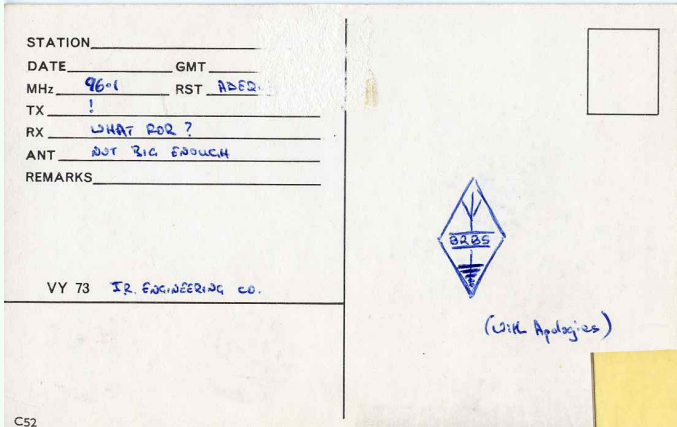 STATION
DATE GMT
MHz 96.1 RST
TX !
RX WHAT FOR ?
ANT NOT BIG ENOUGH
REMARKS
VY 73 I.R. ENGINEERING CO.
C52
B2BS
(With Apologies)